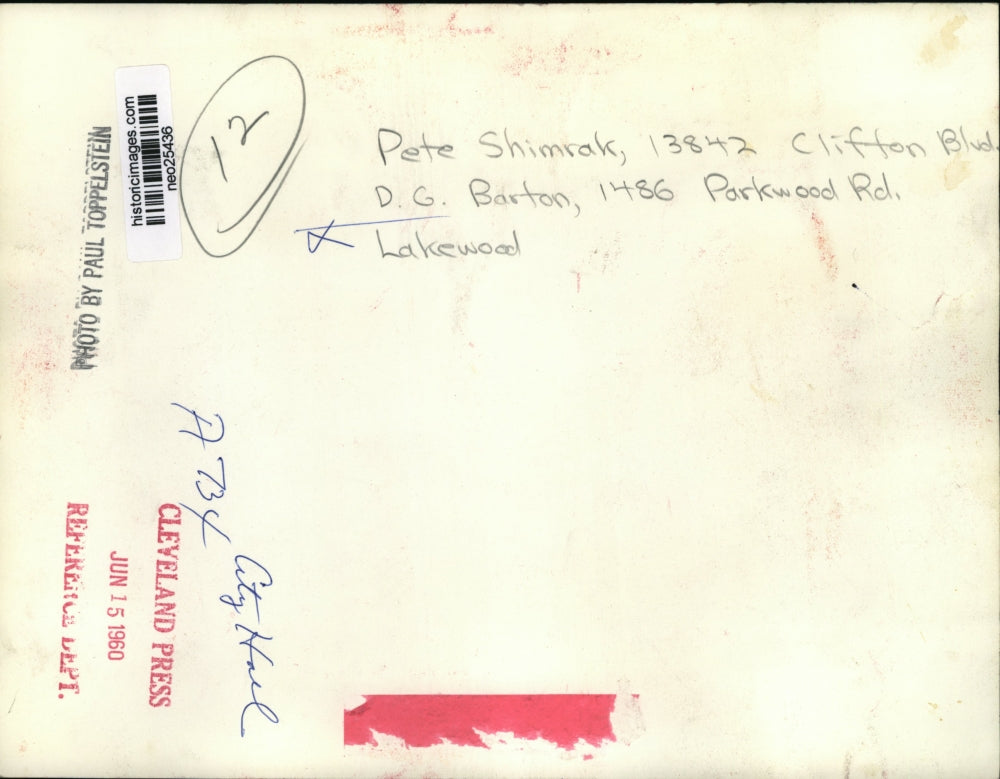 Pete Shimrak, 13842 Clifton Blvd.
D. G. Barton, 1486 Parkwood Rd.
Lakewood
12
historicimages.com
neo25436
PHOTO BY PAUL TOPPELSTEIN
A 734
City Hall
CLEVELAND PRESS
JUN 15 1960
REFERENCE DEPT.